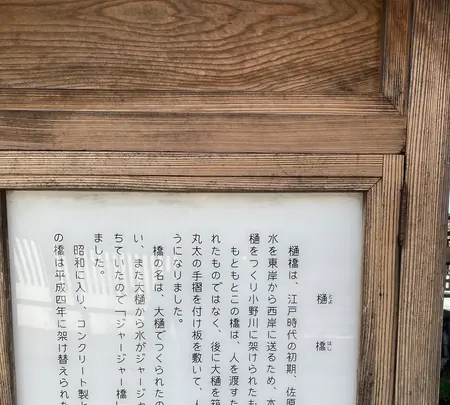 樋橋
とよ はし
樋橋は、江戸時代の初期、佐原
水を東岸から西岸に送るため、本
樋をつくり小野川に架けられたも
もともとこの橋は、人を渡すた
れたものではなく、後に大樋を箱
丸太の手摺を付け板を敷いて、人
うになりました。
橋の名は、大樋でつくられたの
い、また大樋から水がジャージャ
ちていたので「ジャージャー橋し
ました。
昭和に入り、コンクリート製と
の橋は平成四年に架け替えられた